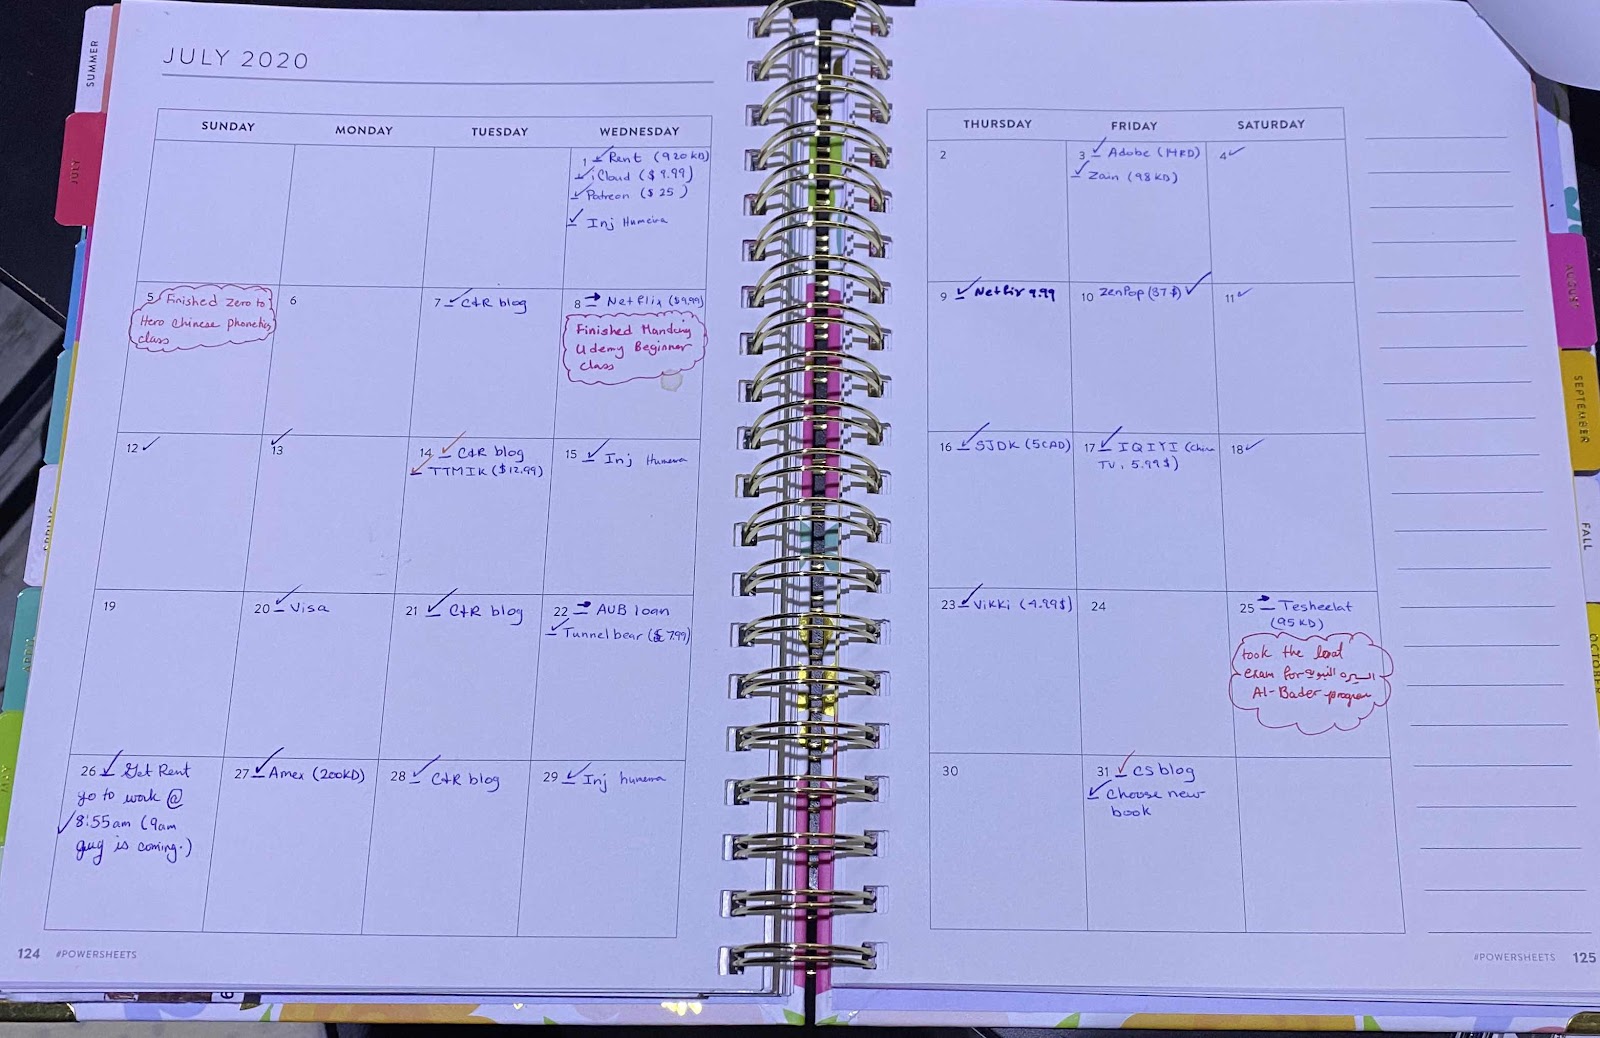 JULY 2020
SUNDAY MONDAY TUESDAY WEDNESDAY THURSDAY FRIDAY SATURDAY
1 Rent (920KD)
iCloud ($9.99)
Patreon ($25)
Inj Humeira
2
3 Adobe (14KD)
Zain (98KD)
4
5 Finished Zero to
Hero Chinese phonetics
class
6
7 C+R blog
8 Netflix ($9.99)
Finished Manding
Udemy Beginner
class
9 Netflix 9.99
10 ZenPop (37$)
11
12
13
14 C+R blog
TTMIK ($12.99)
15 Inj Humeira
16 SJDK (5CAD)
17 IQIYI (China
TV, 5.99$)
18
19
20 Visa
21 C+R blog
22 AUB loan
Tunnelbear ($7.99)
23 Vikki (4.99$)
24
25 Tesheelat
(95KD)
took the local
exam for
Al-Bader program
26 Get Rent
go to work @
8:55am (9am
guy is coming.)
27 Amex (200KD)
28 C+R blog
29 Inj humeira
30
31 CS blog
Choose new
book
124 #POWERSHEETS
#POWERSHEETS 125
SUMMER
JULY
AUGUST
SEPTEMBER
FALL
OCTOBER